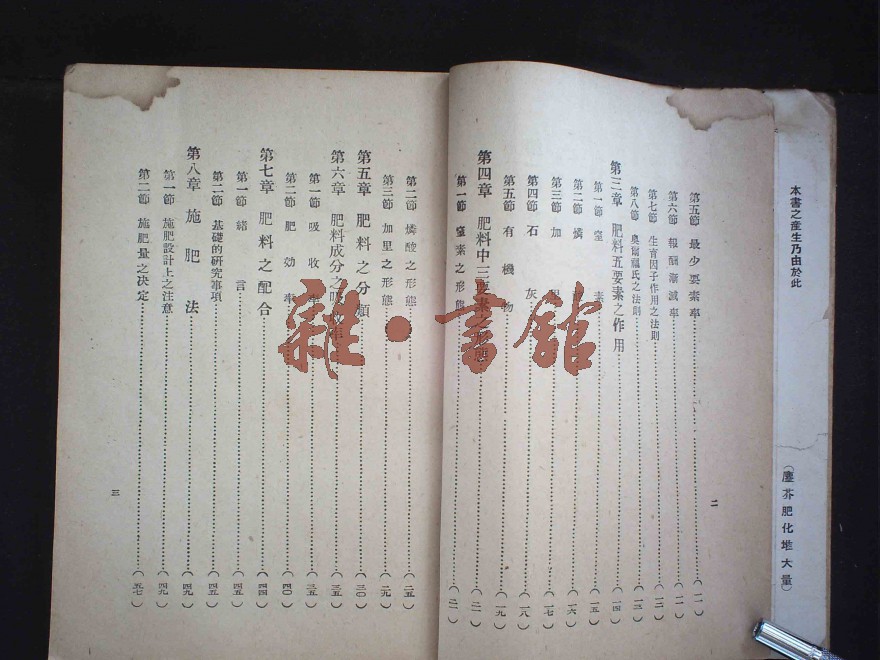 本書之產生乃由於此
（塵芥肥化堆大量）
第五節 最少要素率（一一）
第六節 報酬漸減率（一一）
第七節 生育因子作用之法則（一二）
第八節 奧爾福氏之法則（一三）
第三章 肥料五要素之作用（一四）
第一節 窒素（一五）
第二節 燐（一六）
第三節 加（一七）
第四節 石灰（一八）
第五節 有機物（一九）
第四章 肥料中三要素之（二一）
第一節 窒素之形態（二一）
二
第二節 燐酸之形態（二五）
第三節 加里之形態（二九）
第五章 肥料之分類（三〇）
第六章 肥料成分之吸收（三五）
第一節 吸收（三五）
第二節 肥効率（四〇）
第七章 肥料之配合（四四）
第一節 緒言（四五）
第二節 基礎的研究事項（四五）
第八章 施肥法（四九）
第一節 施肥設計上之注意（四九）
第二節 施肥量之決定（五七）
三
雜·書館